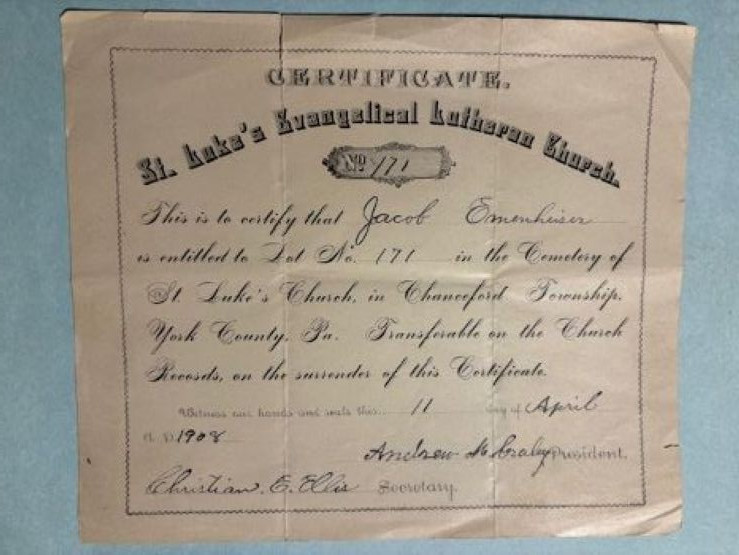 CERTIFICATE.
St. Luke's Evangelical Lutheran Church.
No 171
This is to certify that Jacob Emenheiser
is entitled to Lot No. 171 in the Cemetery of
St. Luke's Church, in Chanceford Township,
York County, Pa. Transferable on the Church
Records, on the surrender of this Certificate.
Witness our hands and seals this 11 day of April
A. D. 1908
Andrew Craley President.
Christian. E. Ellis Secretary.